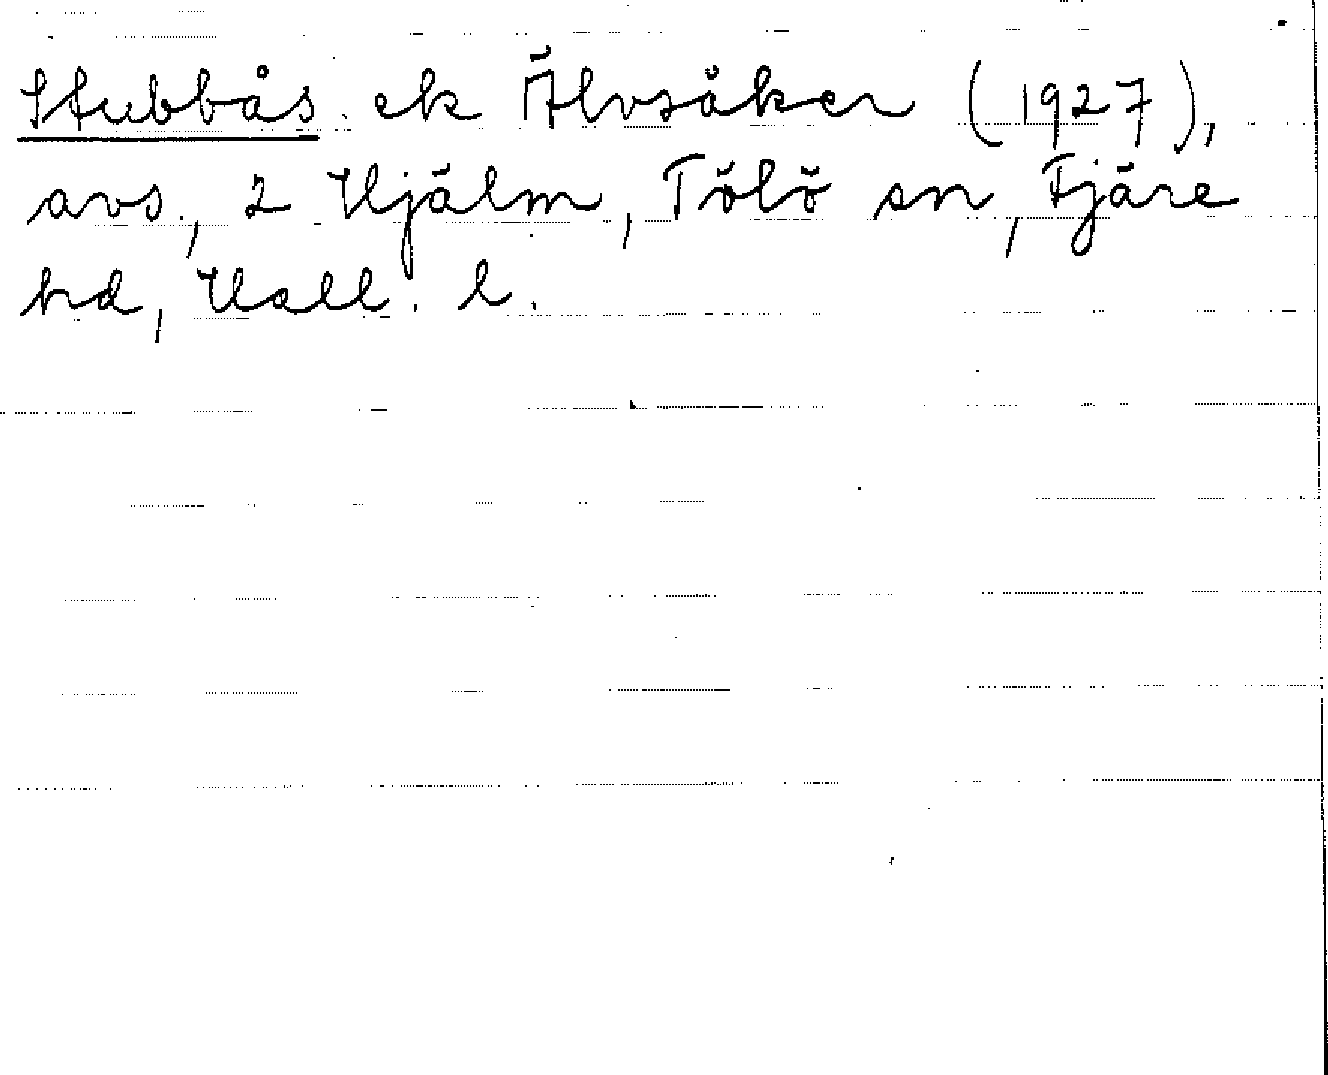 Stubbås ek Älvsåker (1927),
avs., 2 Hjälm, Tölö sn, Fjäre
hd, Hall. l.